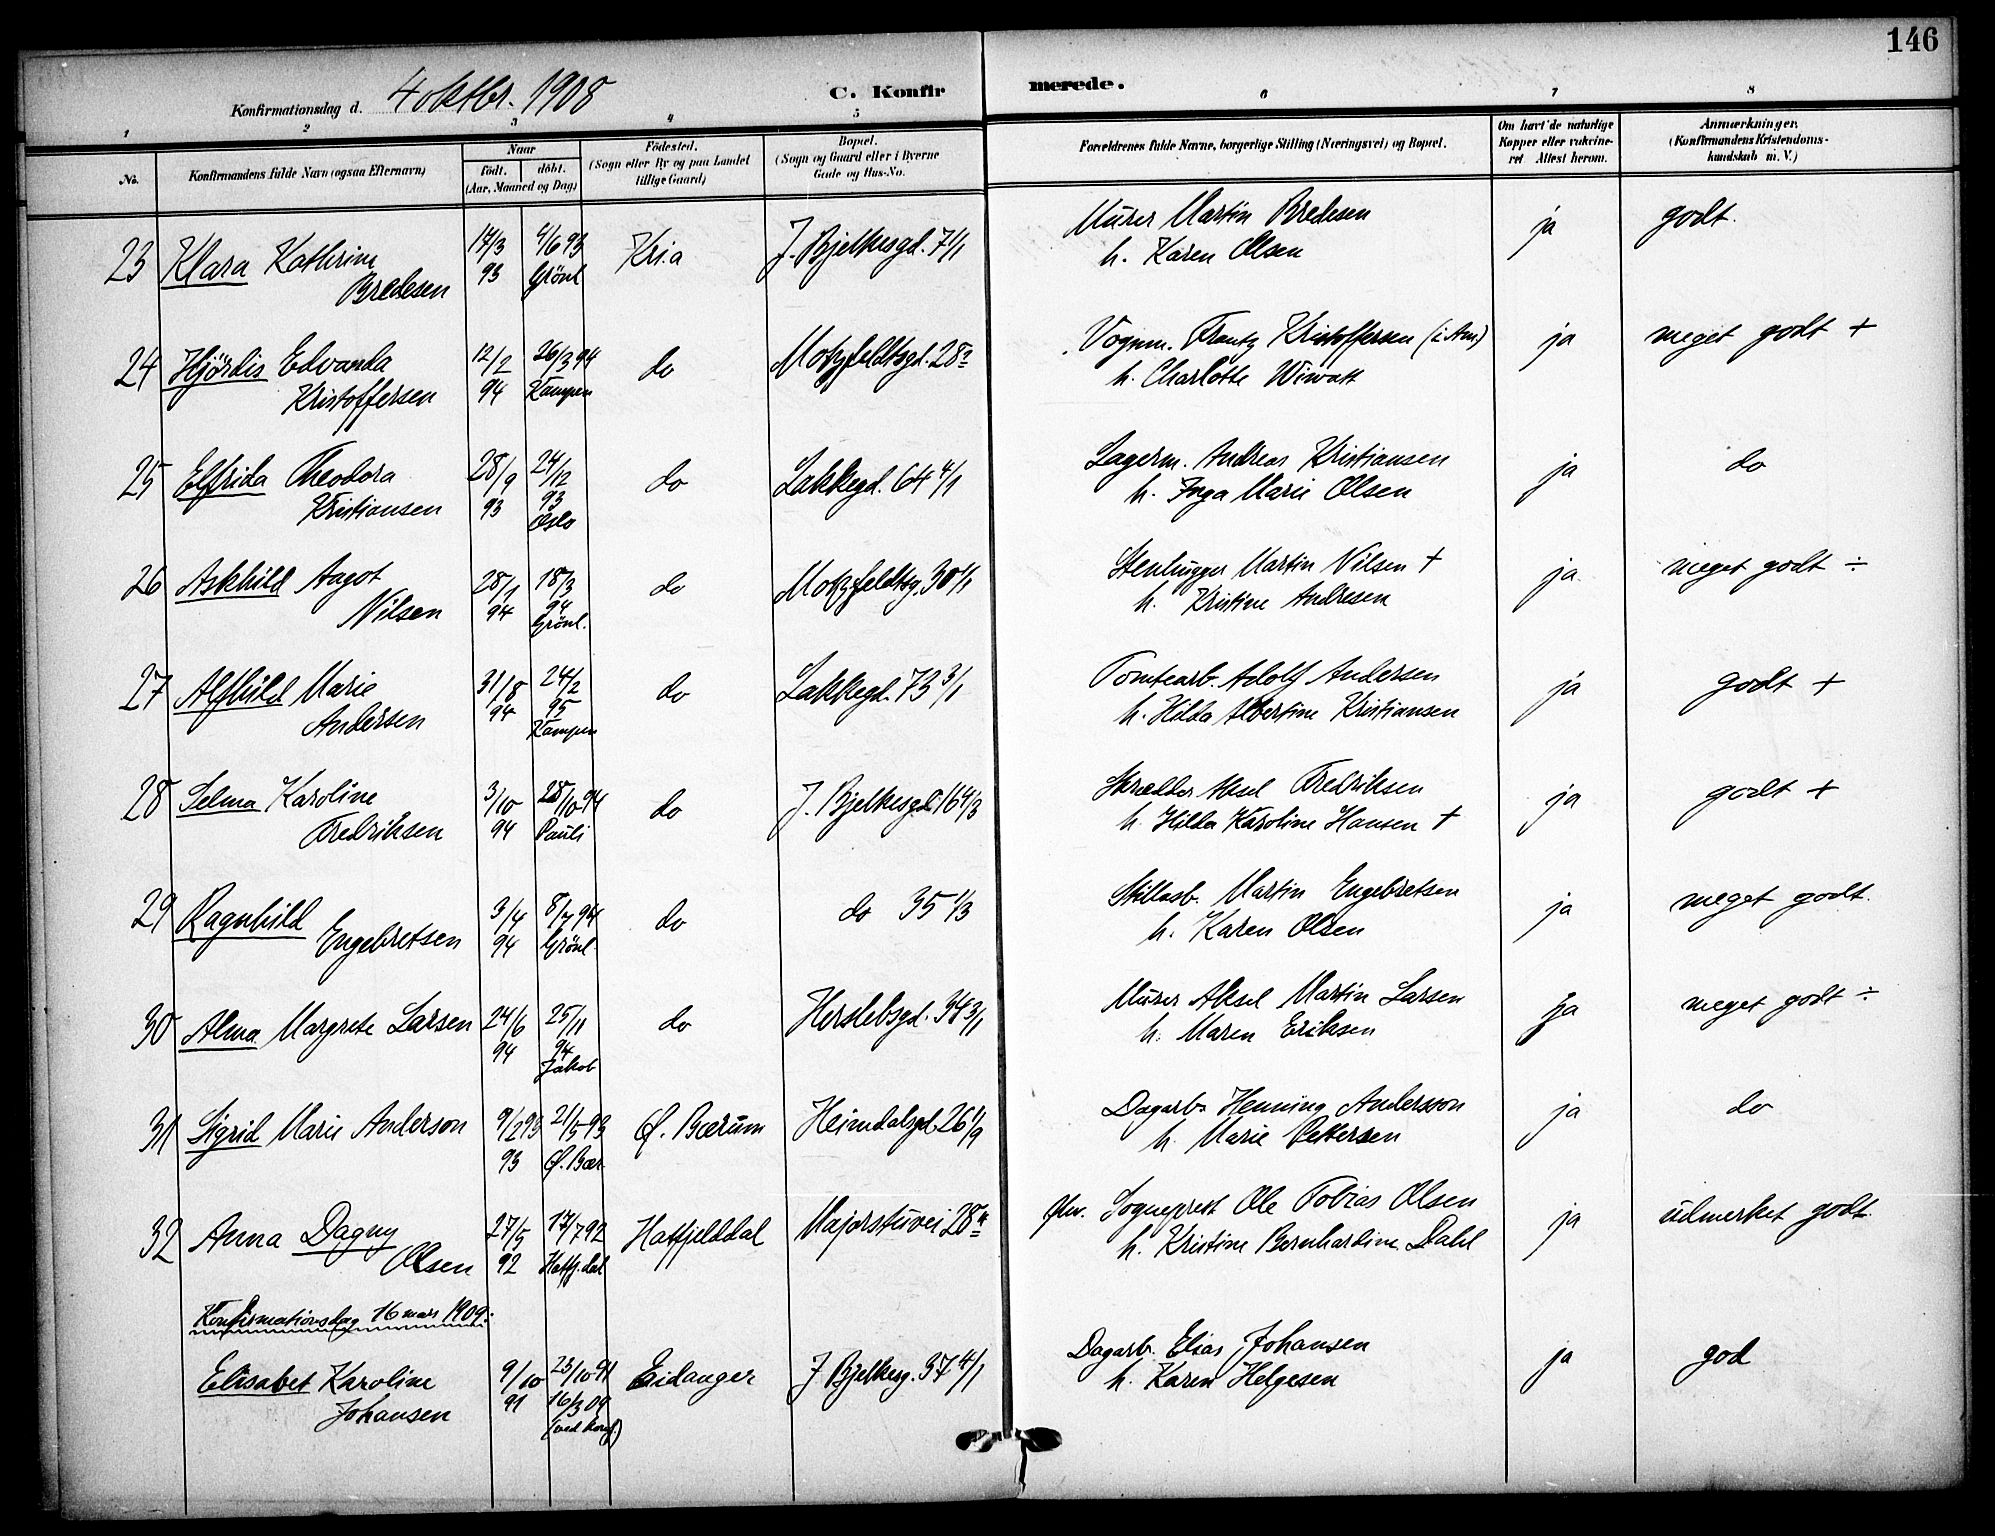 146
Konfirmationsdag d. 4 oktbr. 1908
C. Konfirmerede.
1 2 3 4 5 6 7 8
No.
Konfirmandens fulde Navn (ogsaa Efternavn)
Naar
födt. döbt.
(Aar, Maaned og Dag)
Födested.
(Sogn eller By og paa Landet
tillige Gaard)
Bopæl.
(Sogn og Gaard eller i Byerne
Gade og Hus-No.
Forældrenes fulde Navne, borgerlige Stilling (Næringsvei) og Bopæl.
Om havt de naturlige
Kopper eller vakcine-
ret Attest herom.
Anmærkninger.
(Konfirmandens Kristendoms-
kundskab m. V.)
23 Klara Kathrine 17/3 4/6 93 Kria J. Bjelkesgd. 7 1/1 Murer Martin Bredesen ja godt.
Bredesen 93 Grönl h. Karen Olsen
24 Hjördis Edvarda 12/2 26/3 94 do Motzfeldtsgd. 28 Vognm. Frantz Kristoffersen (i Am.) ja meget godt +
Kristoffersen 94 Kampen h. Charlotte Wiwatt
25 Elfrida Theodora 28/9 24/12 do Lakkegd. 64 4/1 Lagerm. Andreas Kristiansen ja do
Kristiansen 93 93 h. Inga Marie Olsen
Oslo
26 Askhild Aagot 28/1 18/3 do Motzfeldtsg. 30 1/1 Stenhugger Martin Nilsen + ja meget godt ÷
Nilsen 94 94 h. Kristine Andresen
Grönl.
27 Alfhild Marie 31/8 24/2 do Lakkegd. 73 3/1 Tomtearb. Adolf Andersen ja godt +
Andersen 94 95 h. Hilda Albertine Kristiansen
Kampen
28 Selma Karoline 3/10 28/10 94 do J. Bjelkesgd. 16 4/3 Skrædder Aksel Fredriksen ja godt +
Fredriksen 94 Pauli h. Hilda Karoline Hansen +
29 Ragnhild 3/4 8/7 94 do do 35 1/3 Martin Engebretsen ja meget godt.
Engebretsen 94 Grönl h. Karen Olsen
30 Alma Margrete Larsen 24/6 25/11 do Herslebsgd. 34 3/1 Murer Aksel Martin Larsen ja meget godt ÷
94 94 h. Maren Eriksen
Jakob
31 Sigrid Marie Anderson 9/2 93 21/5 93 Ø. Bærum Heimdalsgd. 26 1/9 Dagarb. Henning Andersson ja do
93 Ø. Bær. h. Marie Pettersen
32 Anna Dagny 27/5 17/7 92 Hatfjelddal Majorstuvei 28 Sogneprest Ole Tobias Olsen ja udmerket godt.
Olsen 92 Hatfj.dal h. Kristine Bernhardine Dahl
Konfirmationsdag 16 mars 1909:
Elisabet Karoline 9/10 25/10 91 Eidanger J Bjelkesg. 37 4/1 Dagarb. Elias Johansen ja god
Johansen 91 16/3 09 h. Karen Helgesen
(ved konf.)